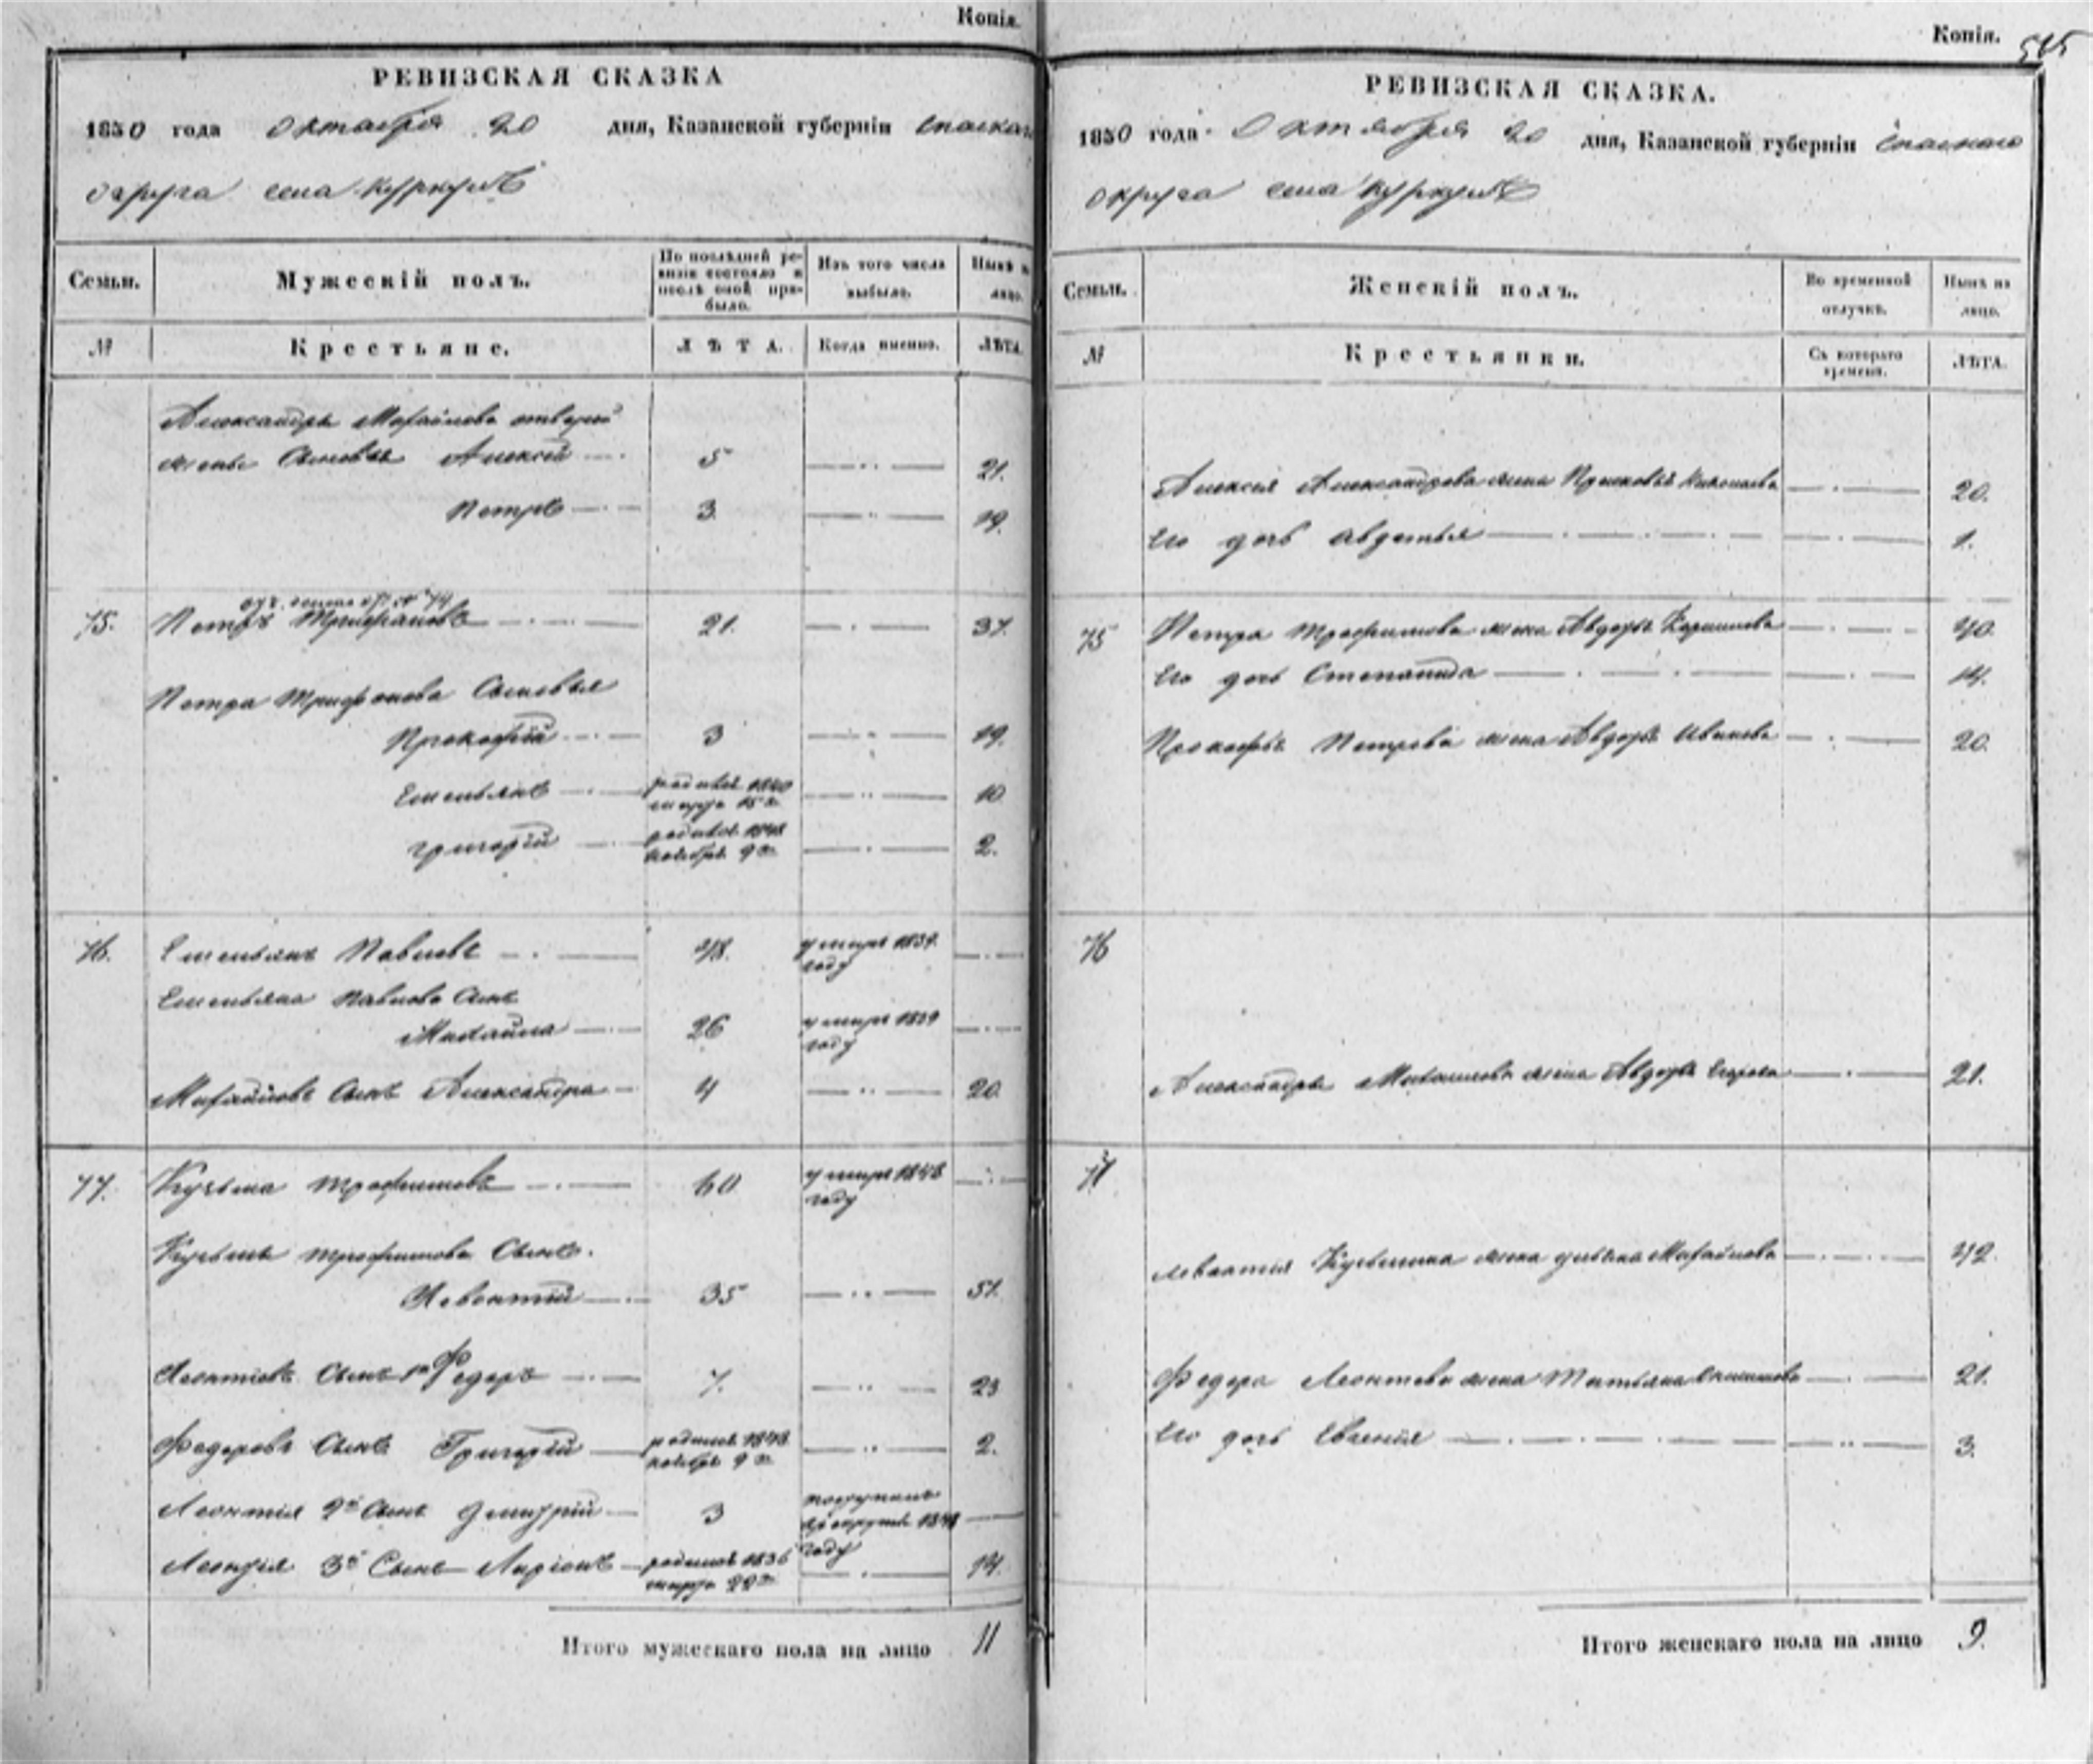 Копія.
РЕВИЗСКАЯ СКАЗКА
1850 года Октября 20 дня, Казанской губерніи Спаскаго
округа села Куркуль
Семьи. Мужескій полъ. По послѣдней ревизіи состояло и послѣ оной прибыло. Изъ того числа выбыло. Нынѣ на лицо.
№ Крестьяне. ЛѢТА. Когда именно. ЛѢТА.
Александра Михайлова
Сыновья Алексей 5 21.
Петръ 3 19.
75. Петръ Трифановъ 21. 37.
Петра Трифонова Сыновья
Прокофій 3 19.
Емельянъ родился 1840 марта 15го 10
Григорій родился 1848 ноября 9го 2.
76. Емельянъ Павловъ 48. умеръ 1834 году
Емельяна Павлова Сынъ
Михайла 26 умеръ 1839 году
Михайловъ Сынъ Александра 4 20
77. Кузьма Трофимовъ 60 умеръ 1848 году
Кузьмы Трофимова Сынъ.
Левонтій 35 51.
Леонтіевъ Сынъ 1й Федоръ 7. 23
Федоровъ Сынъ Григорій родился 1848 ноября 9го 2.
Леонтія 2й Сынъ Дмитрій 3 поступилъ 1848 году
Леонтія 3й Сынъ Ларіонъ родился 1836 марта 22го 14.
Итого мужескаго пола на лицо 11
Копія. 515
РЕВИЗСКАЯ СКАЗКА.
1850 года Октября 20 дня, Казанской губерніи Спаскаго
округа села Куркуль
Семьи. Женскій полъ. Во временной отлучкѣ. Нынѣ на лицо.
№ Крестьянки. Съ котораго времени. ЛѢТА.
Алексея Александрова жена Прасковья Николаева 20.
Его дочь Авдотья 1.
75 Петра Трофимова жена Авдотья 40.
Его дочь Степанида 14.
Прокофья Петрова жена Авдотья Иванова 20.
76
Александры Михайлова жена Авдотья Егорова 21.
77
Левонтия Кузьмина жена Ульяна Михайлова 42.
Федора Леонтева жена Татьяна 21.
Его дочь Евгения 3.
Итого женскаго пола на лицо 9.